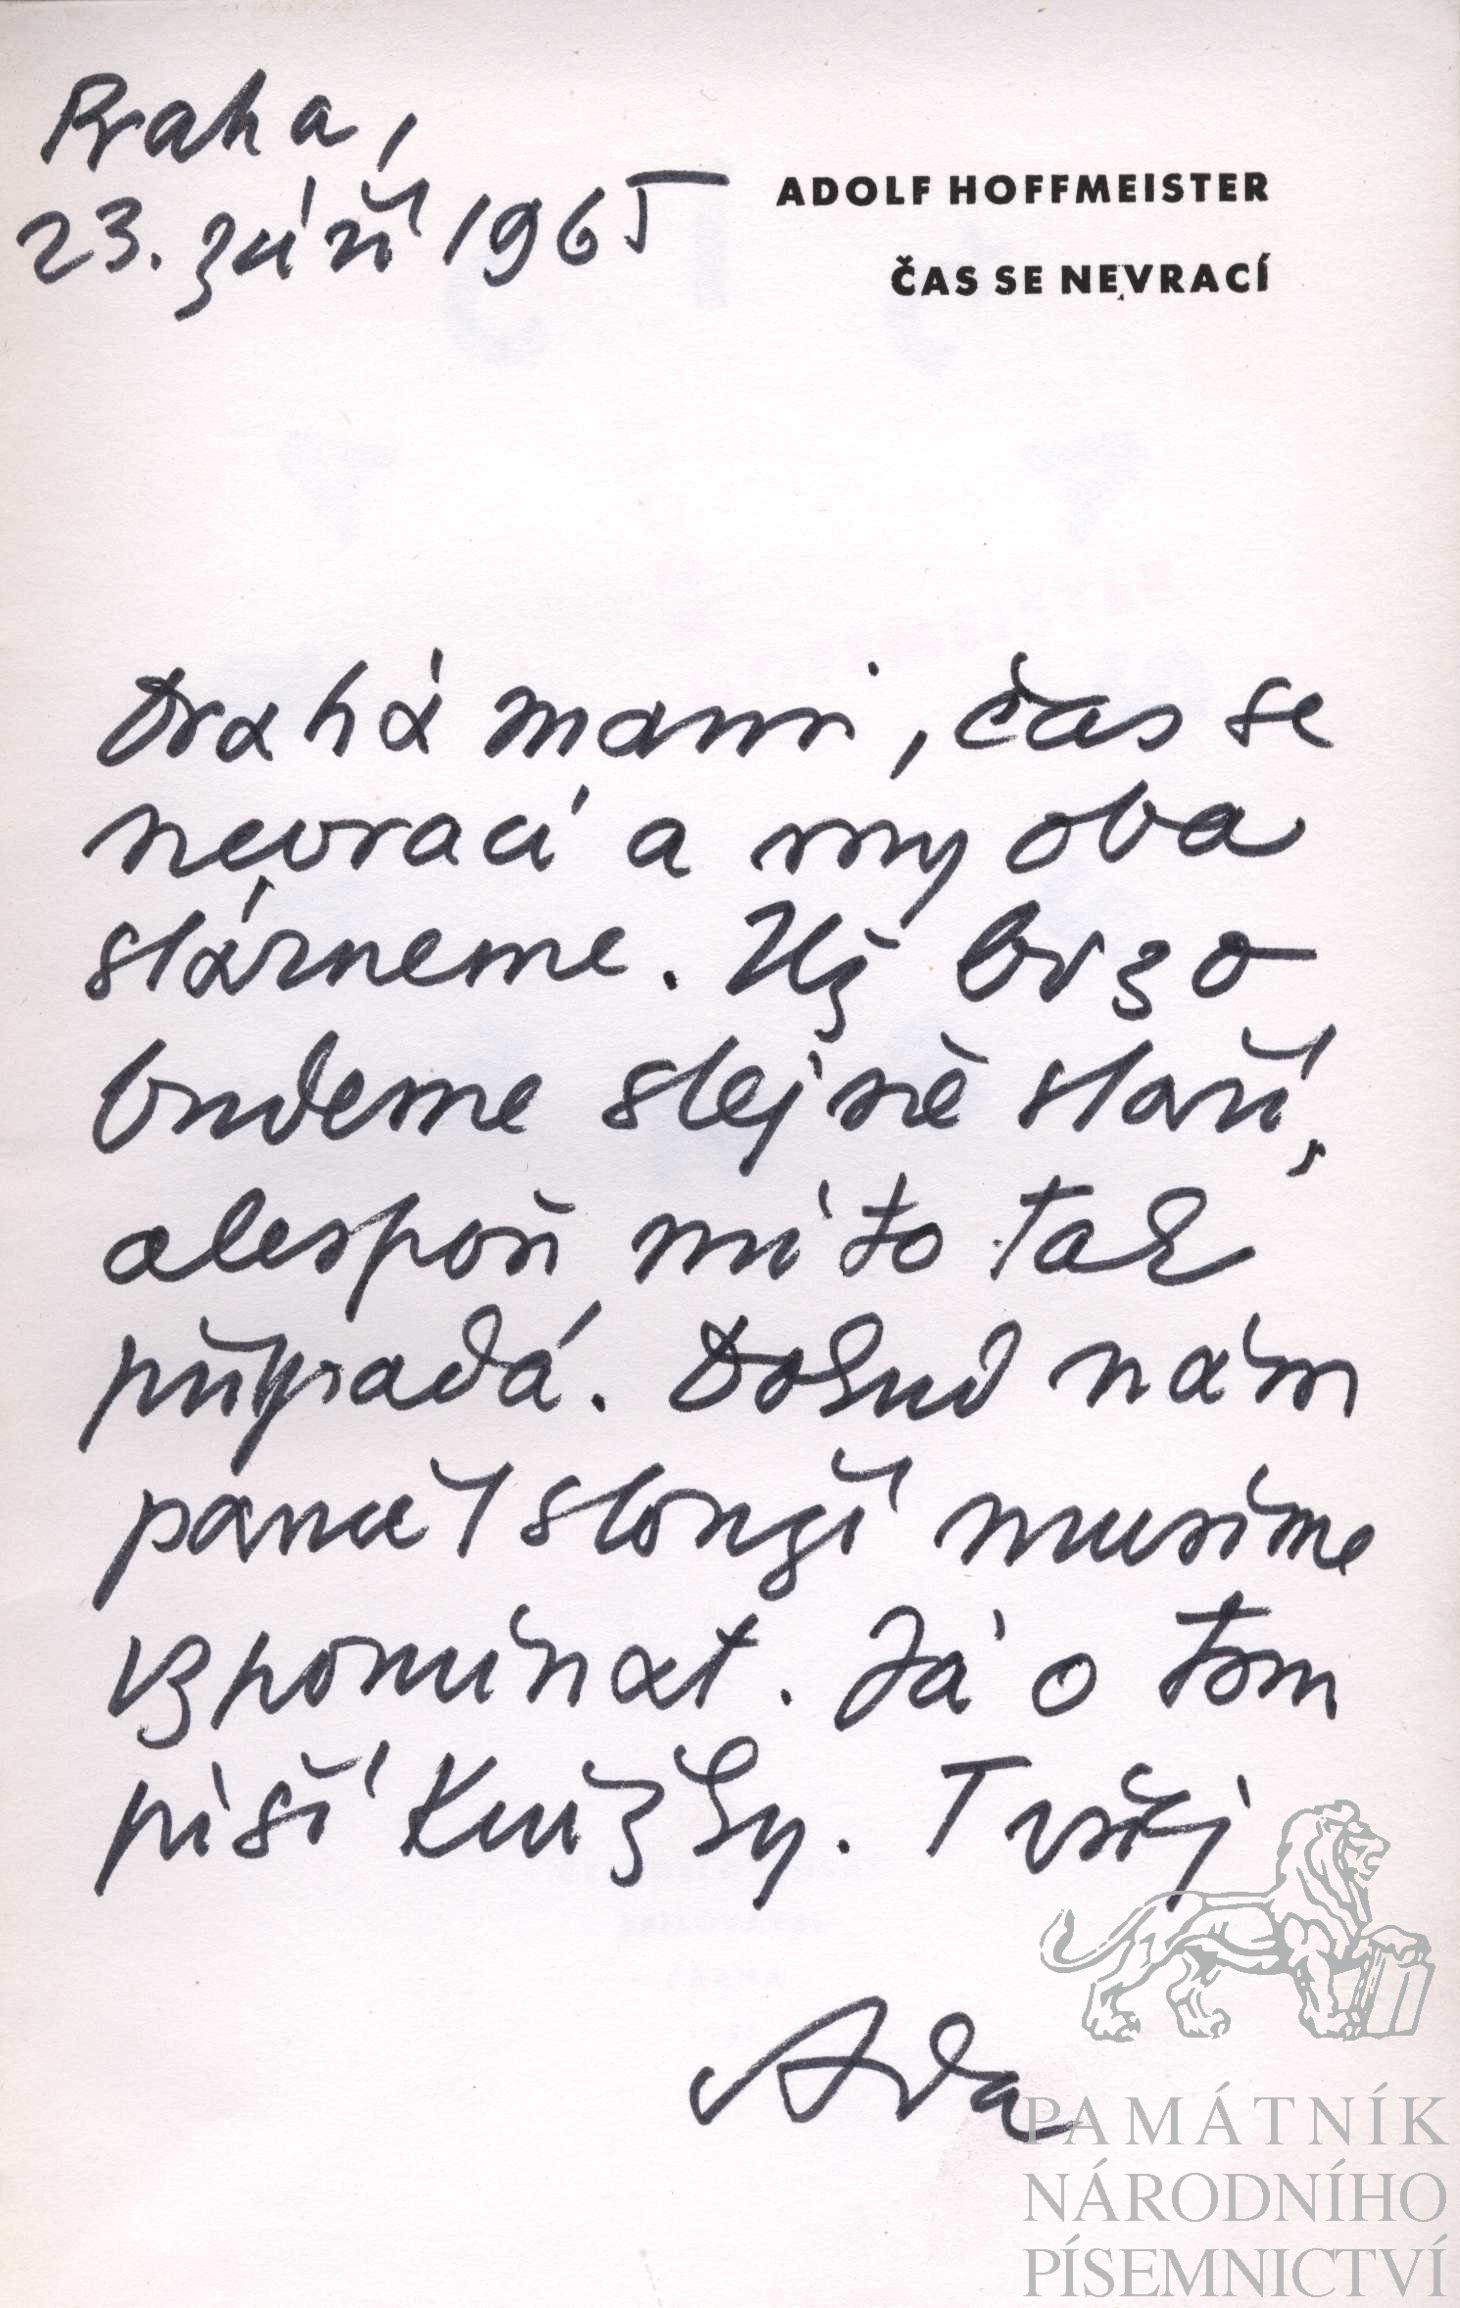 Praha,
23. září 1965
ADOLF HOFFMEISTER
ČAS SE NEVRACÍ
Drahá mami, čas se
nevrací a my oba
stárneme. Už brzo
budeme stejně staří,
alespoň mi to tak
připadá. Dokud nám
paměť slouží musíme
vzpomínat. Já o tom
píši knížky. Tvůj
Ada
PAMÁTNÍK
NÁRODNÍHO
PÍSEMNICTVÍ